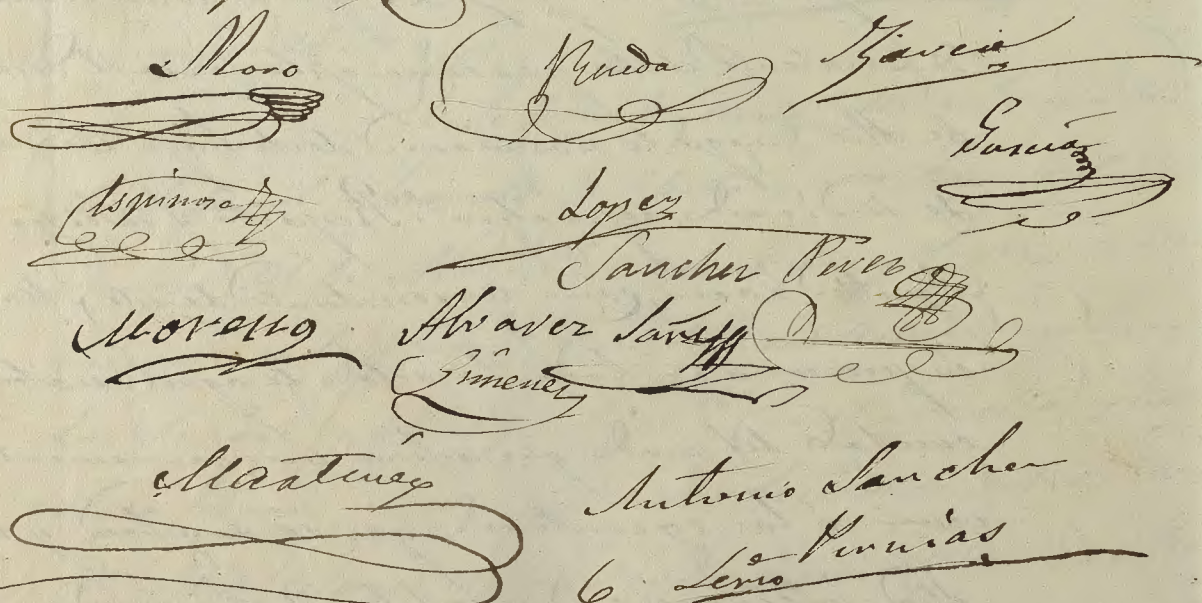 Moro Rueda Garcia
Garcia
Espinosa Lopez
Sanchez Perez
Moreno Alvarez
Gimenez
Martinez
Antonio Sanchez
Pernias